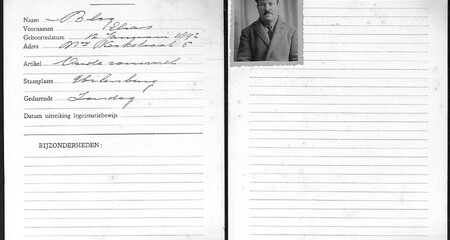 Naam Blog
Voornamen Elias
Geboortedatum 12 Januari 1892
Adres Nwe Kerkstraat 5
Artikel Oude rommel
Staanplaats Uilenburg
Gedurende Zondag
Datum uitreiking legitimatiebewijs
BIJZONDERHEDEN: